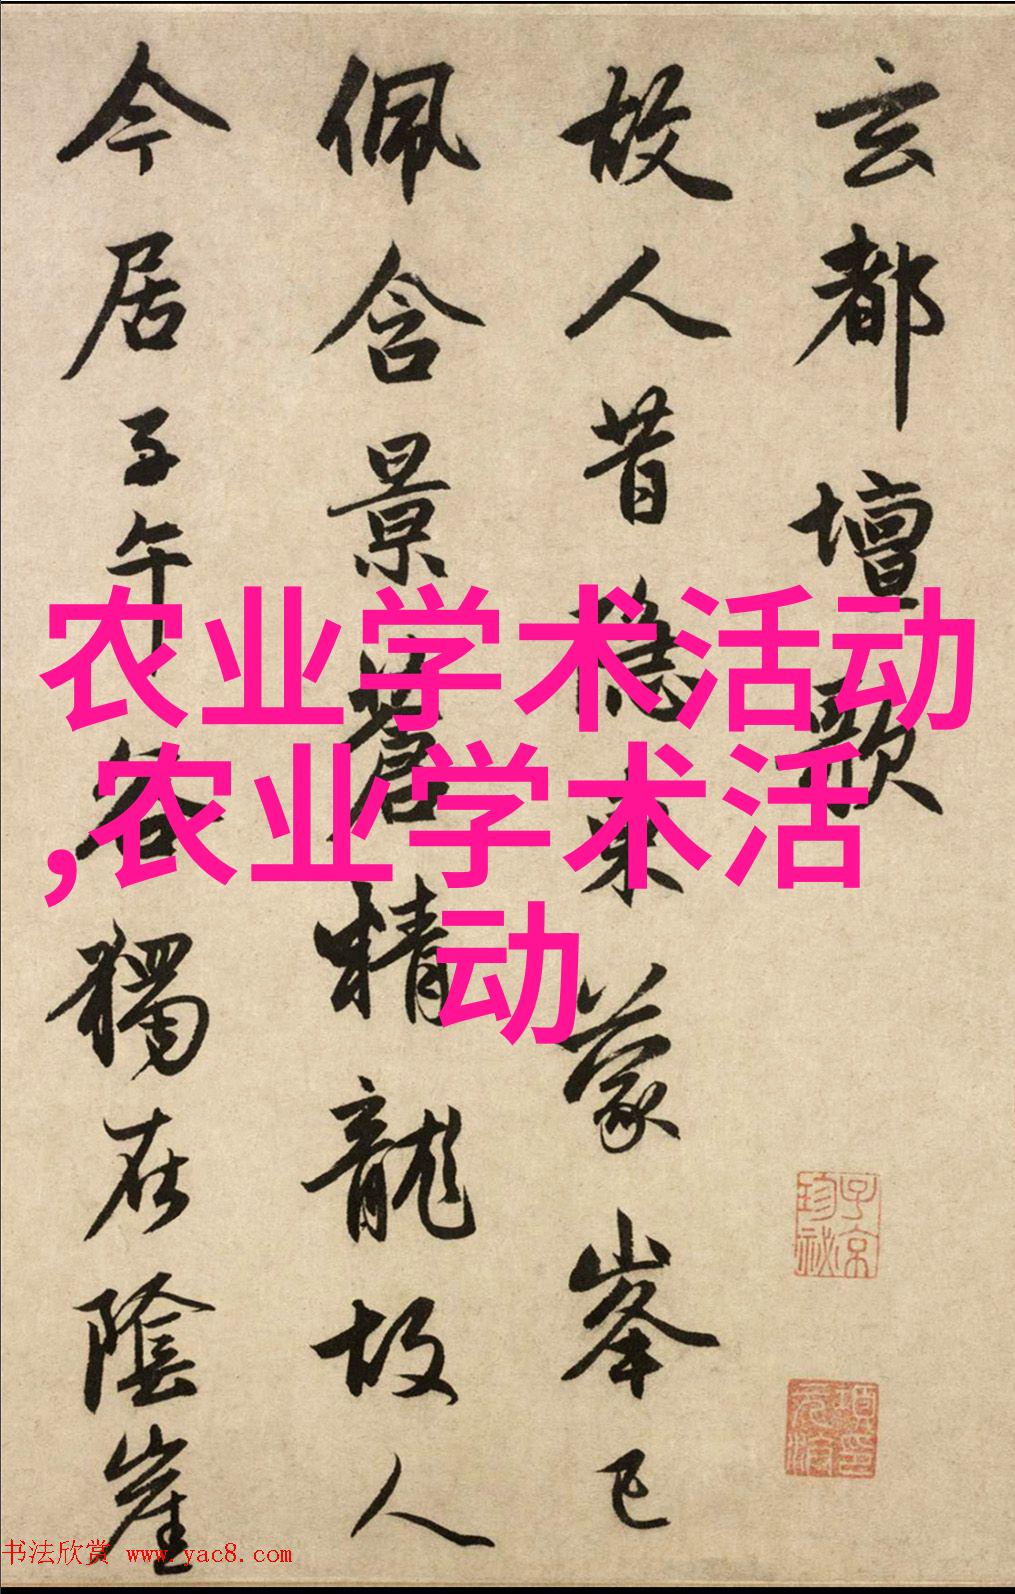 玄都壇歌
故人昔隱東蒙峯已
佩含景蒼精龍故人
今居子午谷獨在陰崖
农业学术活动
,农业学术活
动
子京
珍祕
书法欣赏 www.yac8.com